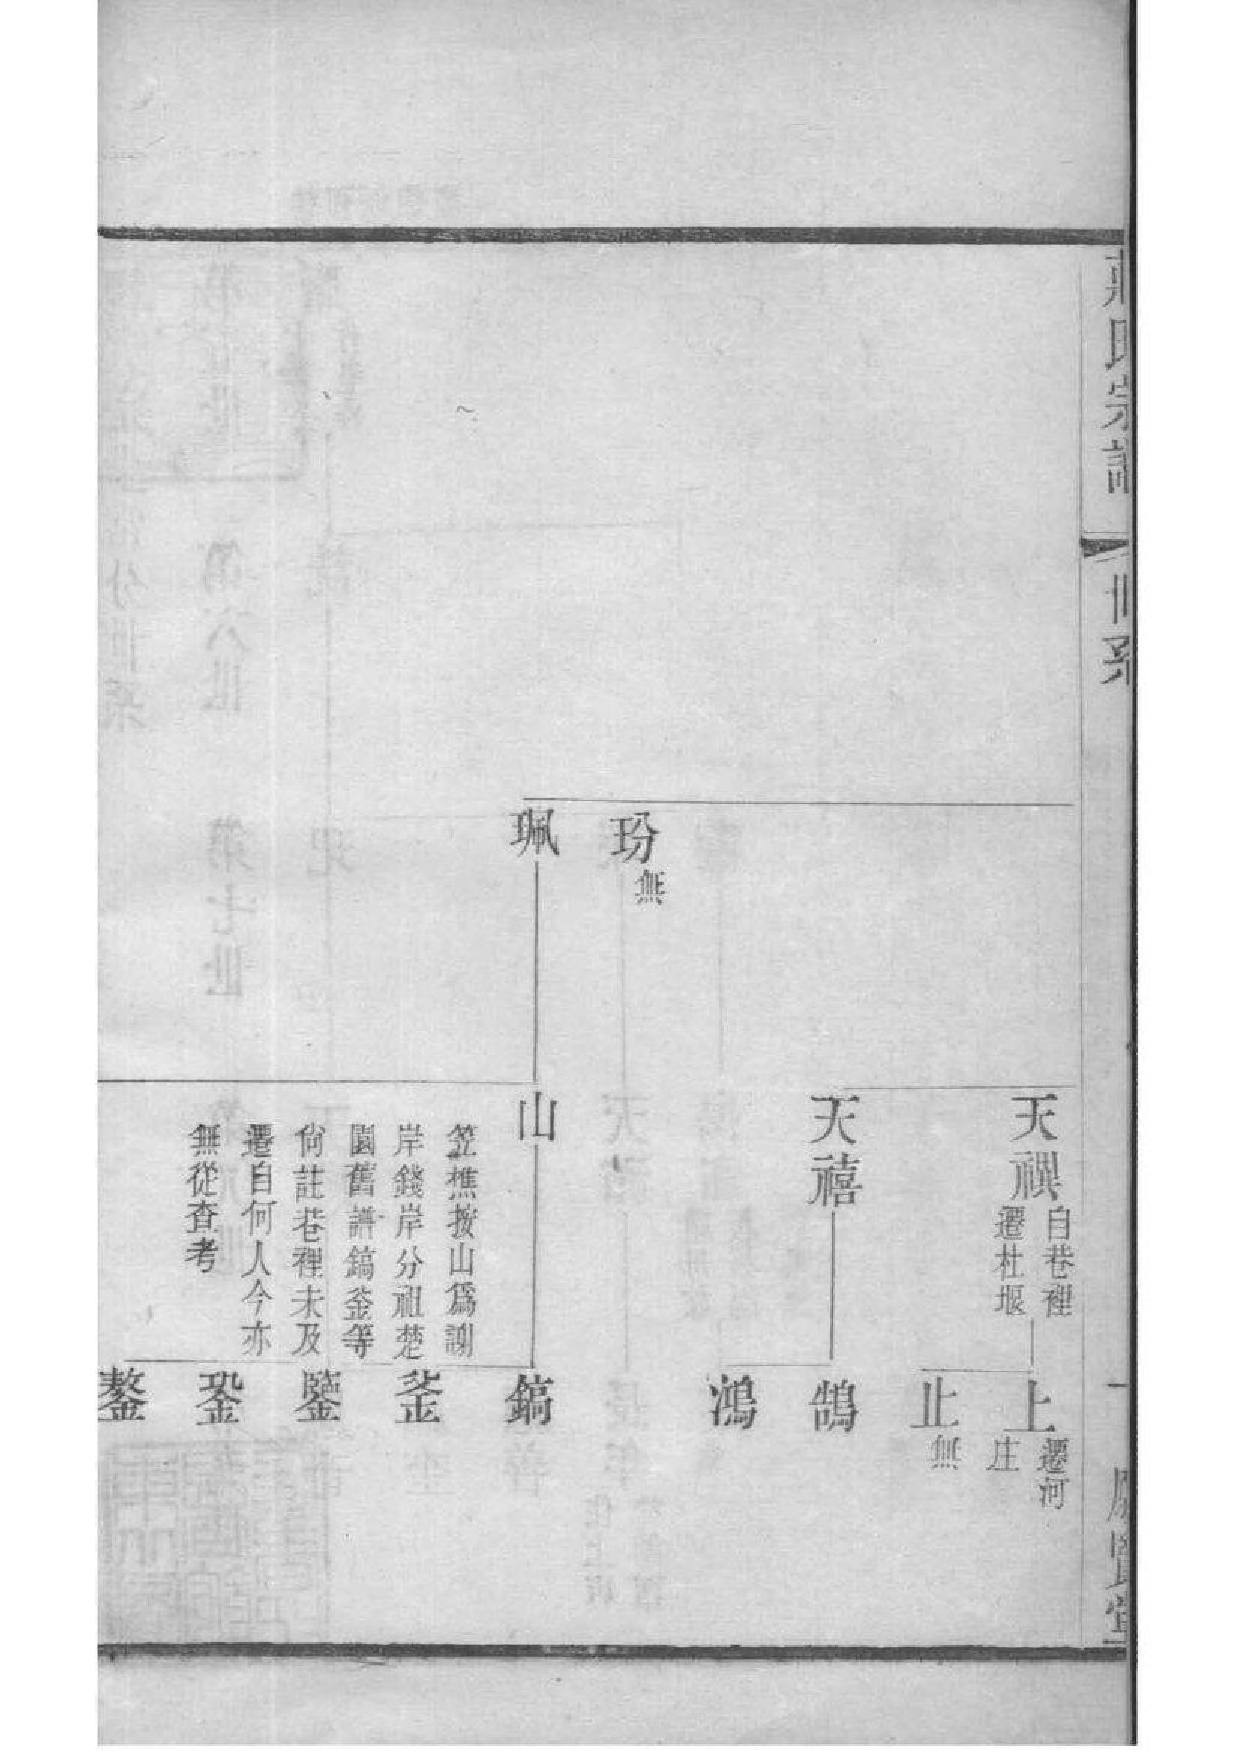 氏宗譜
世系
玢
無
珮
天禩
自巷裡
遷杜堰
天禧
山
笠樵按山為謝
岸錢岸分祖楚
園舊譜鎬釜等
尙註巷裡未及
遷自何人今亦
無從查考
上
遷河
庄
止
無
鵠
鴻
鎬
釜
鑒
銎
鏊